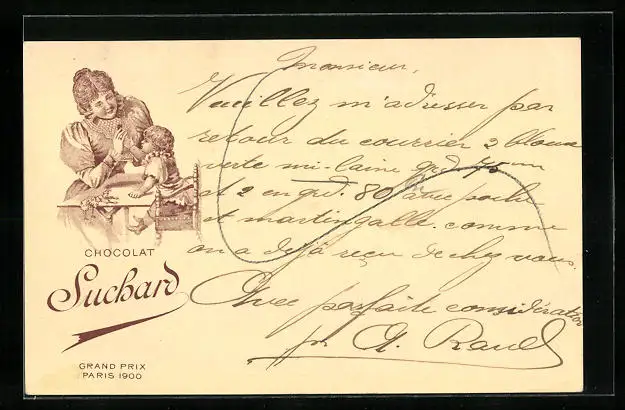 Monsieur,
Veuillez m'adresser par
retour du courrier 2 blouses
verte mi-laine grd. 75
et 2 en grd. 80 avec poche
et martingalle comme
on a déjà reçu de chez vous.
Avec parfaite considération
A.
CHOCOLAT
Suchard
GRAND PRIX
PARIS 1900